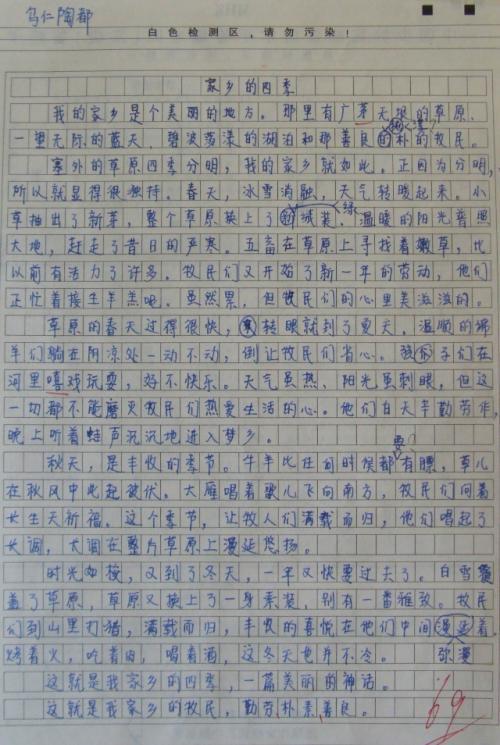 乌仁陶都
白色检测区，请勿污染！
家乡的四季
我的家乡是个美丽的地方。那里有广茅无垠的草原、
一望无际的蓝天、碧波荡漾的湖泊和那善良的朴的牧民。
塞外的草原四季分明，我的家乡就如此。正因为分明，
所以就显得很独特。春天，冰雪消融，天气转暖起来。小
草抽出了新芽，整个草原换上了绿装，温暖的阳光普照
大地，赶走了昔日的严寒。五畜在草原上寻找着嫩草，比
以前有活力了许多。牧民们又开始了新一年的劳动，他们
正忙着接生羊羔呢。虽然累，但牧民们的心里美滋滋的。
草原的春天过得很快，转眼就到了夏天，温顺的绵
羊们躺在阴凉处一动不动，倒让牧民们省心。孩子们在
河里嘻戏玩耍，好不快乐。天气虽热、阳光虽刺眼，但这
一切都不能磨灭牧民们热爱生活的心。他们白天辛勤劳作，
晚上听着蛙声沉沉地进入梦乡。
秋天，是丰收的季节。牛羊比任何时候都有膘，草儿
在秋风中此起彼伏。大雁唱着歌儿飞向南方，牧民们向着
长生天祈福。这个季节，让牧人们满载而归，他们唱起了
长调，长调在整片草原上漫延悠扬。
时光如梭，又到了冬天，一年又快要过去了。白雪覆
盖了草原，草原又换上了一身素装，别有一番雅致。牧民
们到山里打猎，满载而归，丰收的喜悦在他们中间漫延着。
烤着火，吃着肉，喝着酒，这冬天也并不冷。 弥漫
这就是我家乡的四季，一篇美丽的神话。
这就是我家乡的牧民，勤劳、朴素、善良。
69